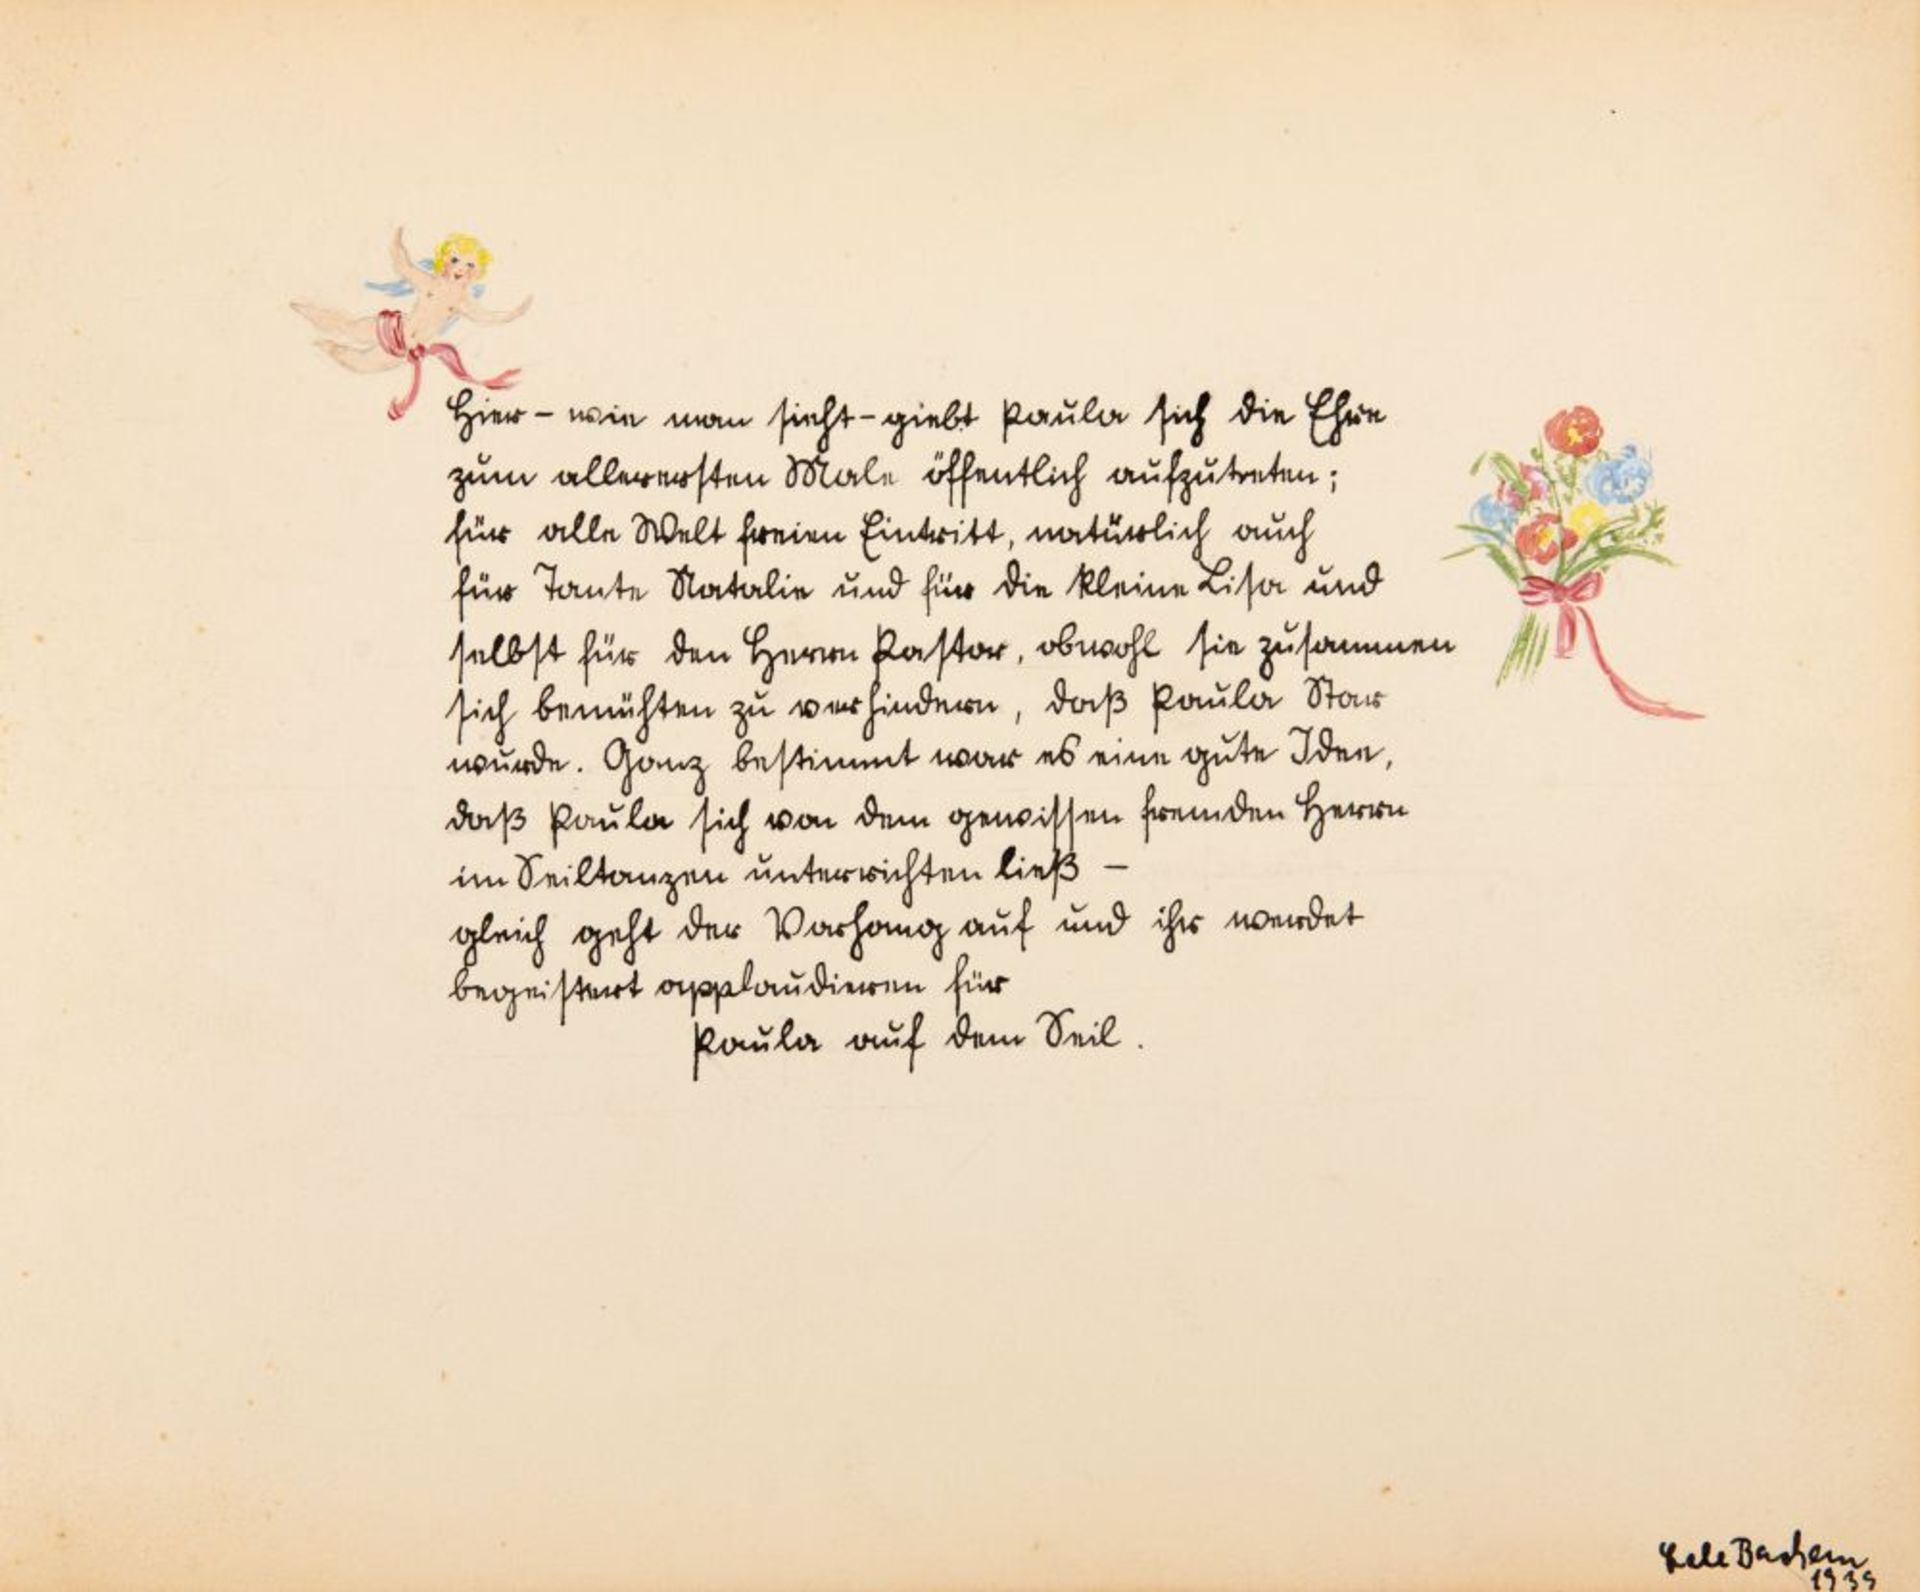 Hier – wie man sieht – giebt Paula sich die Ehre
zum allerersten Male öffentlich aufzutreten;
für alle Welt freien Eintritt, natürlich auch
für Tante Natalie und für die kleine Lisa und
selbst für den Herrn Pastor, obwohl sie zusammen
sich bemühten zu verhindern, daß Paula Star
wurde. Ganz bestimmt war es eine gute Idee,
daß Paula sich von dem gewissen fremden Herrn
im Seiltanzen unterrichten ließ –
gleich geht der Vorhang auf und ihr werdet
begeistert applaudieren für
Paula auf dem Seil.
Lele Bachem
1939